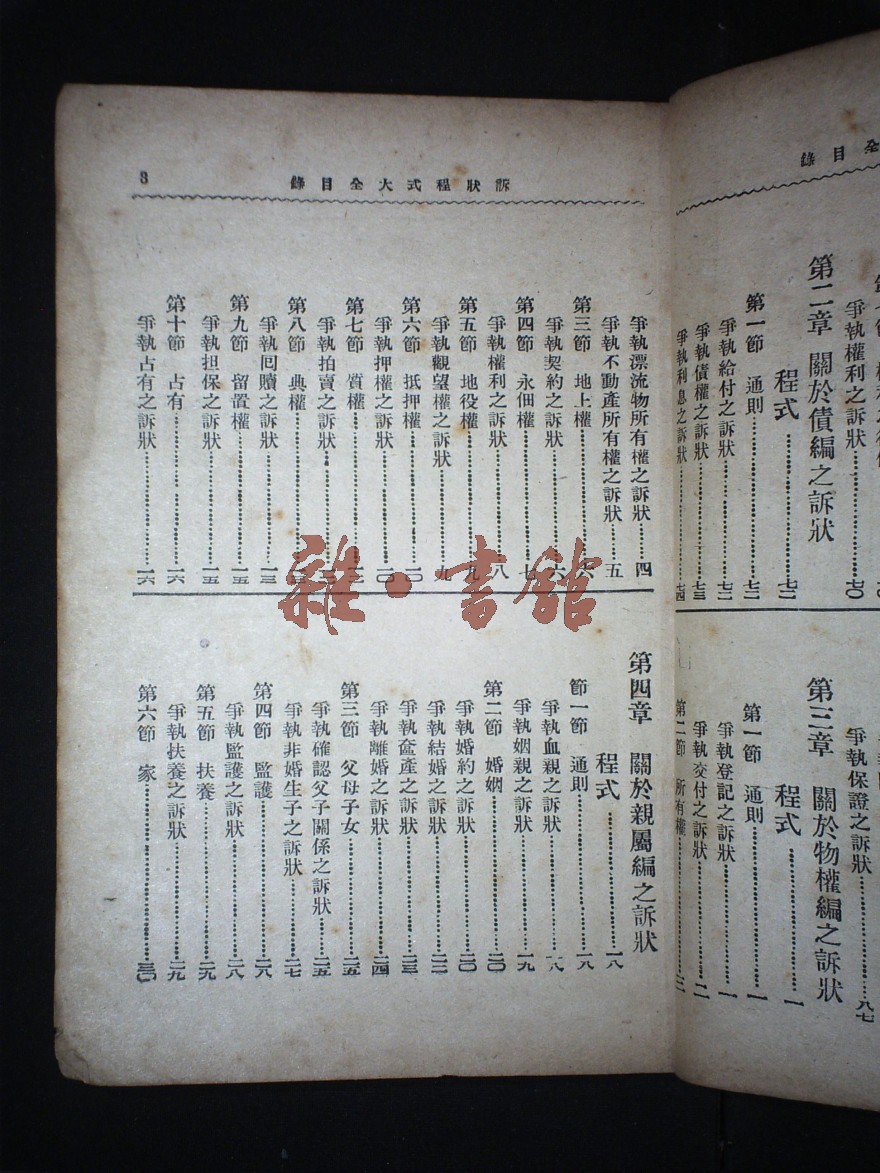 全目錄
爭執權利之訴狀…七〇
第二章 關於債編之訴狀
程式…七二
第一節 通則…七二
爭執給付之訴狀…七二
爭執債權之訴狀…七三
爭執利息之訴狀…七四
爭執保證之訴狀…八七
第三章 關於物權編之訴狀
程式…一
第一節 通則…一
爭執登記之訴狀…一
爭執交付之訴狀…二
第二節 所有權…三
訴狀程式大全目錄
3
爭執漂流物所有權之訴狀…四
爭執不動產所有權之訴狀…五
第三節 地上權…六
爭執契約之訴狀…六
第四節 永佃權…七
爭執權利之訴狀…八
第五節 地役權…九
爭執觀望權之訴狀…九
第六節 抵押權…一〇
爭執押權之訴狀…一〇
第七節 質權
爭執拍賣之訴狀
第八節 典權
爭執回贖之訴狀…一三
第九節 留置權…一五
爭執担保之訴狀…一五
第十節 占有…一六
爭執占有之訴狀…一六
第四章 關於親屬編之訴狀
程式…一八
節一節 通則…一八
爭執血親之訴狀…一八
爭執姻親之訴狀…一九
第二節 婚姻…二〇
爭執婚約之訴狀…二〇
爭執結婚之訴狀…二二
爭執奩產之訴狀…二三
爭執離婚之訴狀…二四
第三節 父母子女…二五
爭執確認父子關係之訴狀…二五
爭執非婚生子之訴狀…二七
第四節 監護…二八
爭執監護之訴狀…二八
第五節 扶養…二九
爭執扶養之訴狀…二九
第六節 家…三〇
雜·書館